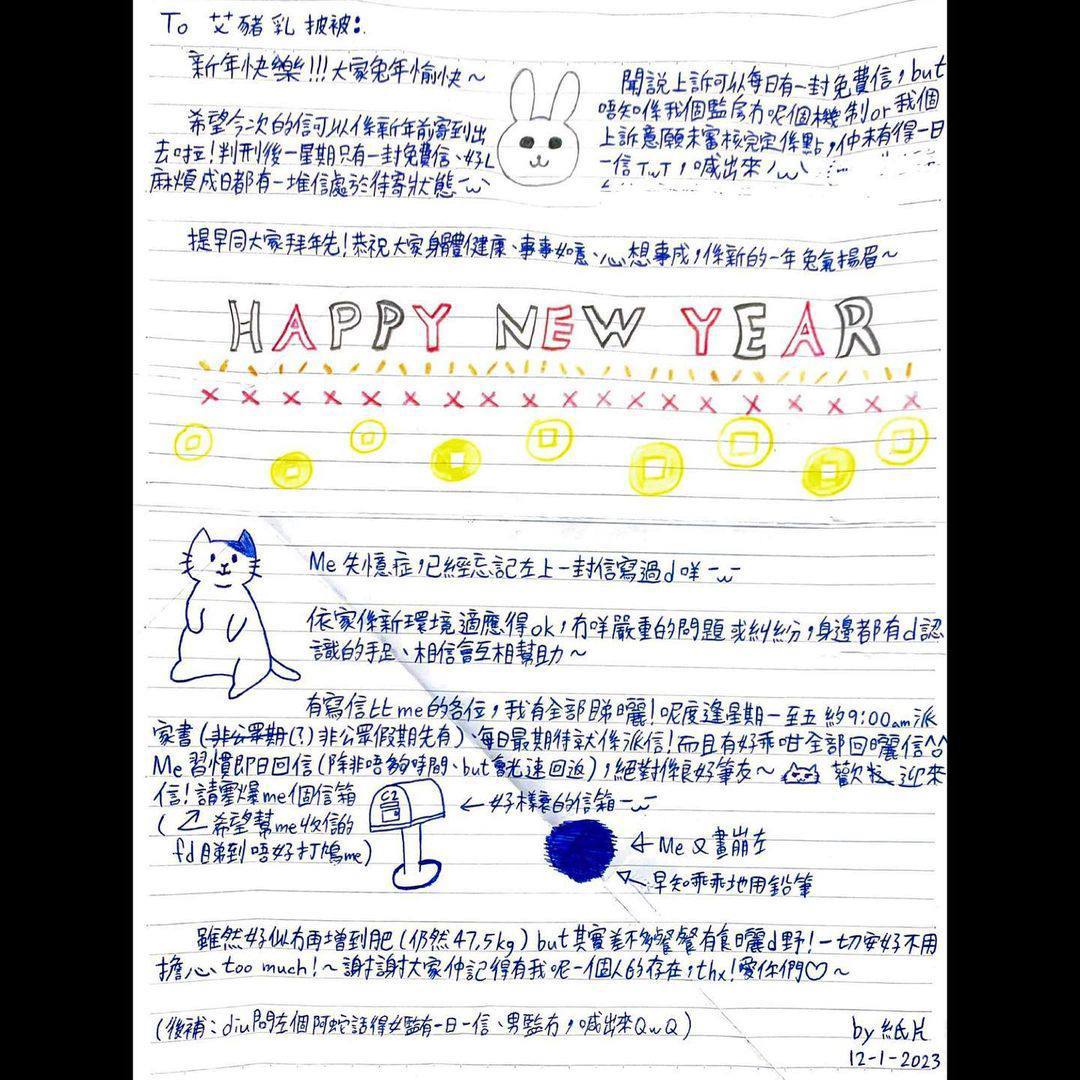 To 艾豬乳 披被：
新年快樂!!!大家兔年愉快～
希望今次的信可以係新年前寄到出
去啦!判刑後一星期只有一封免費信、好L
麻煩成日都有一堆信處於待寄狀態
聞說上訴可以每日有一封免費信，but
唔知係我個監房冇呢個機制or我個
上訴意願未審核完定係點，仲未有得一日
一信TwT，喊出來
提早同大家拜年先!恭祝大家身體健康、事事如意、心想事成，係新的一年兔氣揚眉～
HAPPY NEW YEAR
Me失憶症，已經忘記左上一封信寫過d咩 ¯w¯
依家係新環境適應得ok，冇咩嚴重的問題或糾紛，身邊都有d認
識的手足、相信會互相幫助～
有寫信比me的各位，我有全部睇曬!呢度逢星期一至五約9:00am派
家書(非公眾期(?)非公眾假期先有)每日最期待就係派信!而且有好乖咁全部回曬信^^
Me習慣即日回信(除非唔夠時間、but會光速回返)，絕對係良好筆友～ 歡 迎來
信!請塞爆me個信箱
(希望幫me收信的
fd睇到唔好打鳩me)
C2
← 好樣衰的信箱 ¯w¯
← Me又畫崩左
早知乖乖地用鉛筆
雖然好似冇再增到肥(仍然47.5kg) but其實差不多餐餐有食曬d野!一切安好不用
擔心too much!～謝謝大家仲記得有我呢一個人的存在，thx!愛你們♡～
(後補：diu問左個阿蛇話得女監有一日一信、男監冇，喊出來QwQ)
by 紙片
12-1-2023